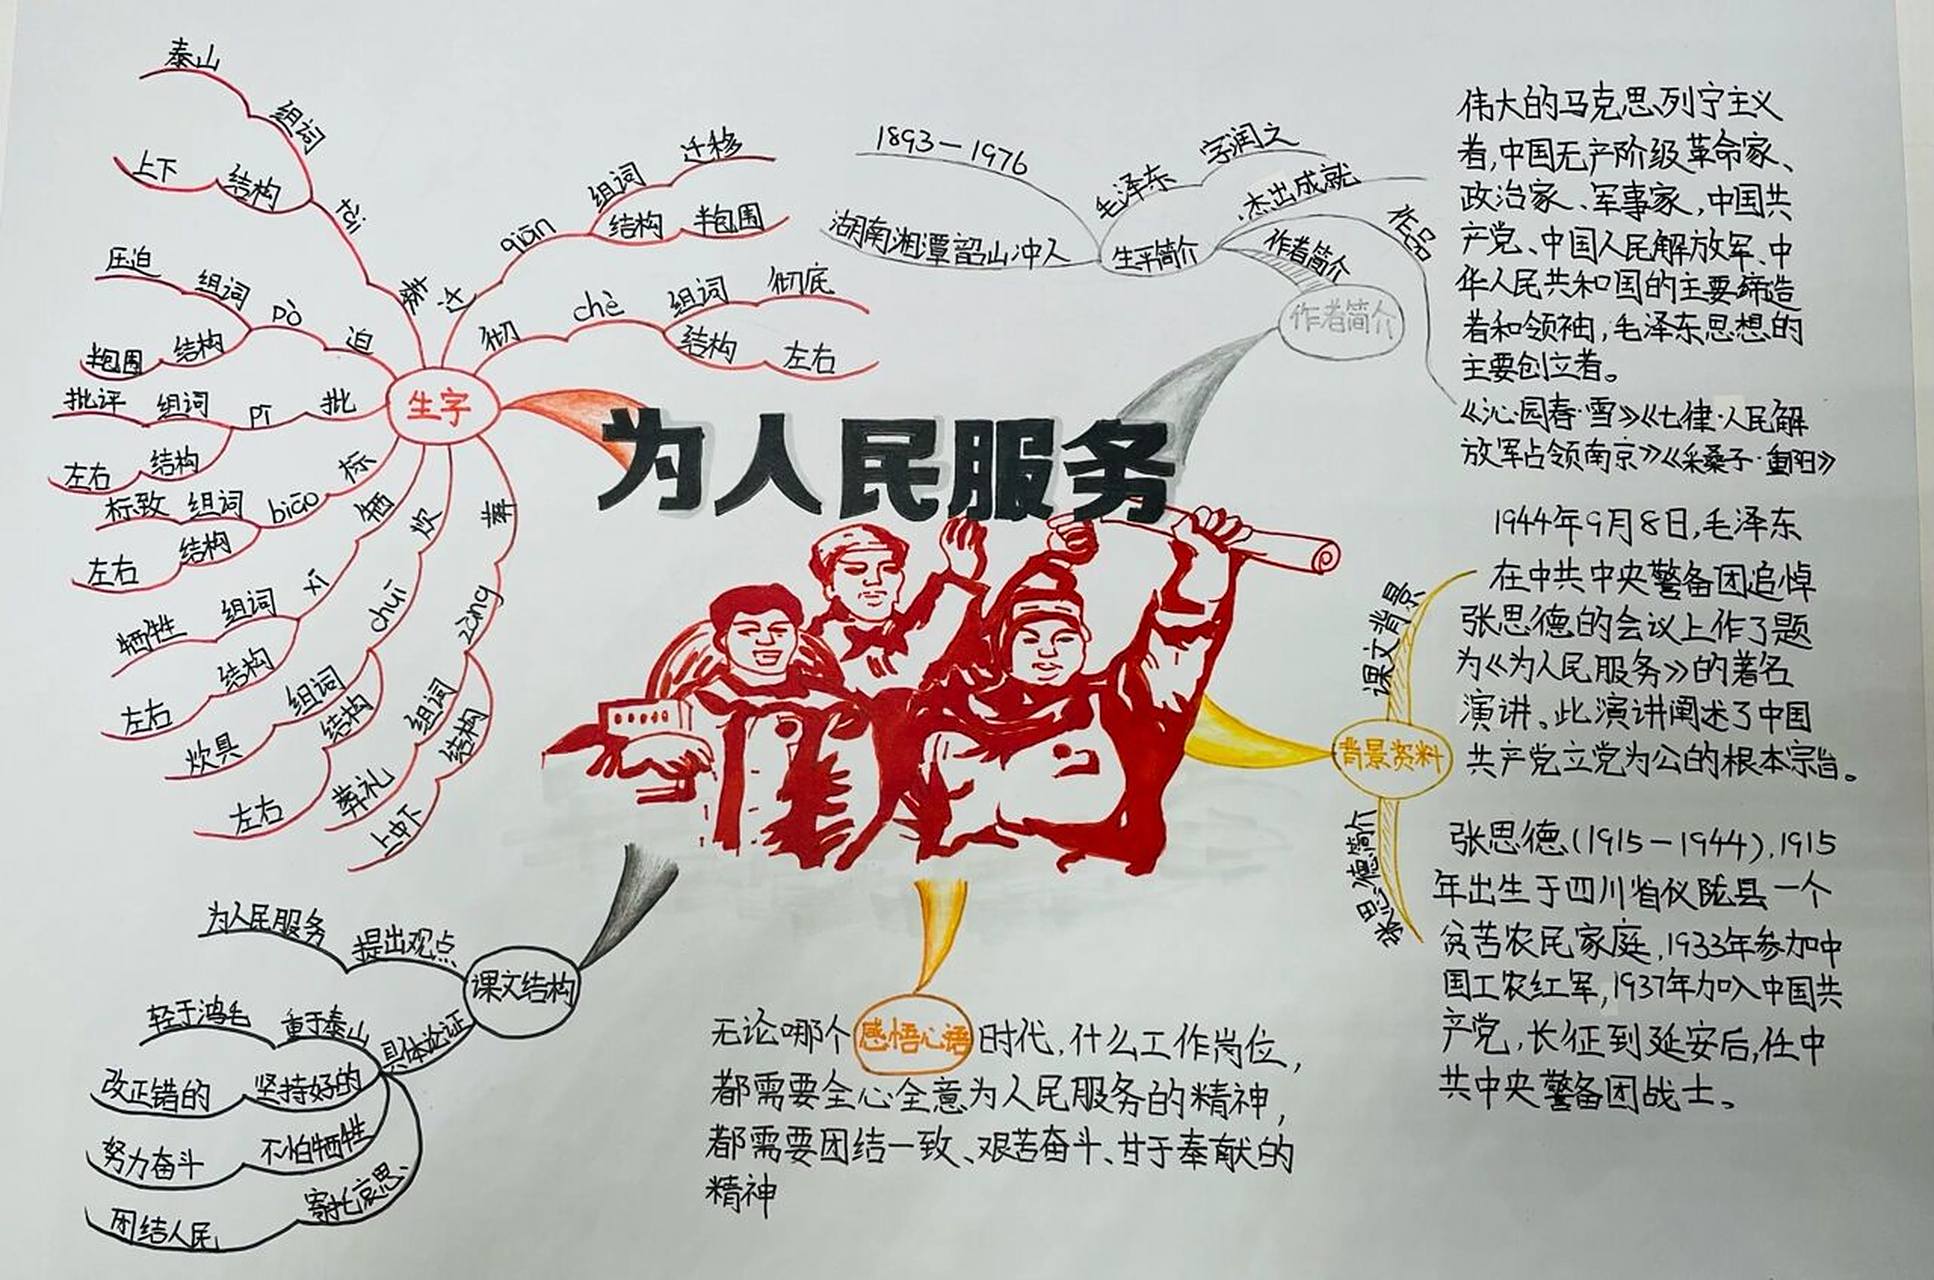 为人民服务
生字
泰
tài
组词
泰山
结构
上下
迁
qiān
组词
迁移
结构
半包围
彻
chè
组词
彻底
结构
左右
迫
pò
组词
压迫
结构
半包围
批
pī
组词
批评
结构
左右
标
biāo
组词
标致
结构
左右
牺
xī
组词
牺牲
结构
左右
炊
chuī
组词
炊具
结构
左右
葬
zàng
组词
葬礼
结构
上中下
作者简介
作者简介
生平简介
1893—1976
湖南湘潭韶山冲人
毛泽东
字润之
杰出成就
伟大的马克思列宁主义
者,中国无产阶级革命家、
政治家、军事家,中国共
产党、中国人民解放军、中
华人民共和国的主要缔造
者和领袖,毛泽东思想的
主要创立者。
作品
《沁·园春·雪》《七律·人民解
放军占领南京》《采桑子·重阳》
背景资料
课文背景
1944年9月8日,毛泽东
在中共中央警备团追悼
张思德的会议上作了题
为《为人民服务》的著名
演讲。此演讲阐述了中国
共产党立党为公的根本宗旨。
张思德简介
张思德(1915—1944),1915
年出生于四川省仪陇县一个
贫苦农民家庭,1933年参加中
国工农红军,1937年加入中国共
产党,长征到延安后,任中
共中央警备团战士。
课文结构
提出观点
为人民服务
具体论证
重于泰山
轻于鸿毛
坚持好的
改正错的
不怕牺牲
努力奋斗
寄托哀思
团结人民
无论哪个感悟心语时代,什么工作岗位,
都需要全心全意为人民服务的精神,
都需要团结一致、艰苦奋斗、甘于奉献的
精神